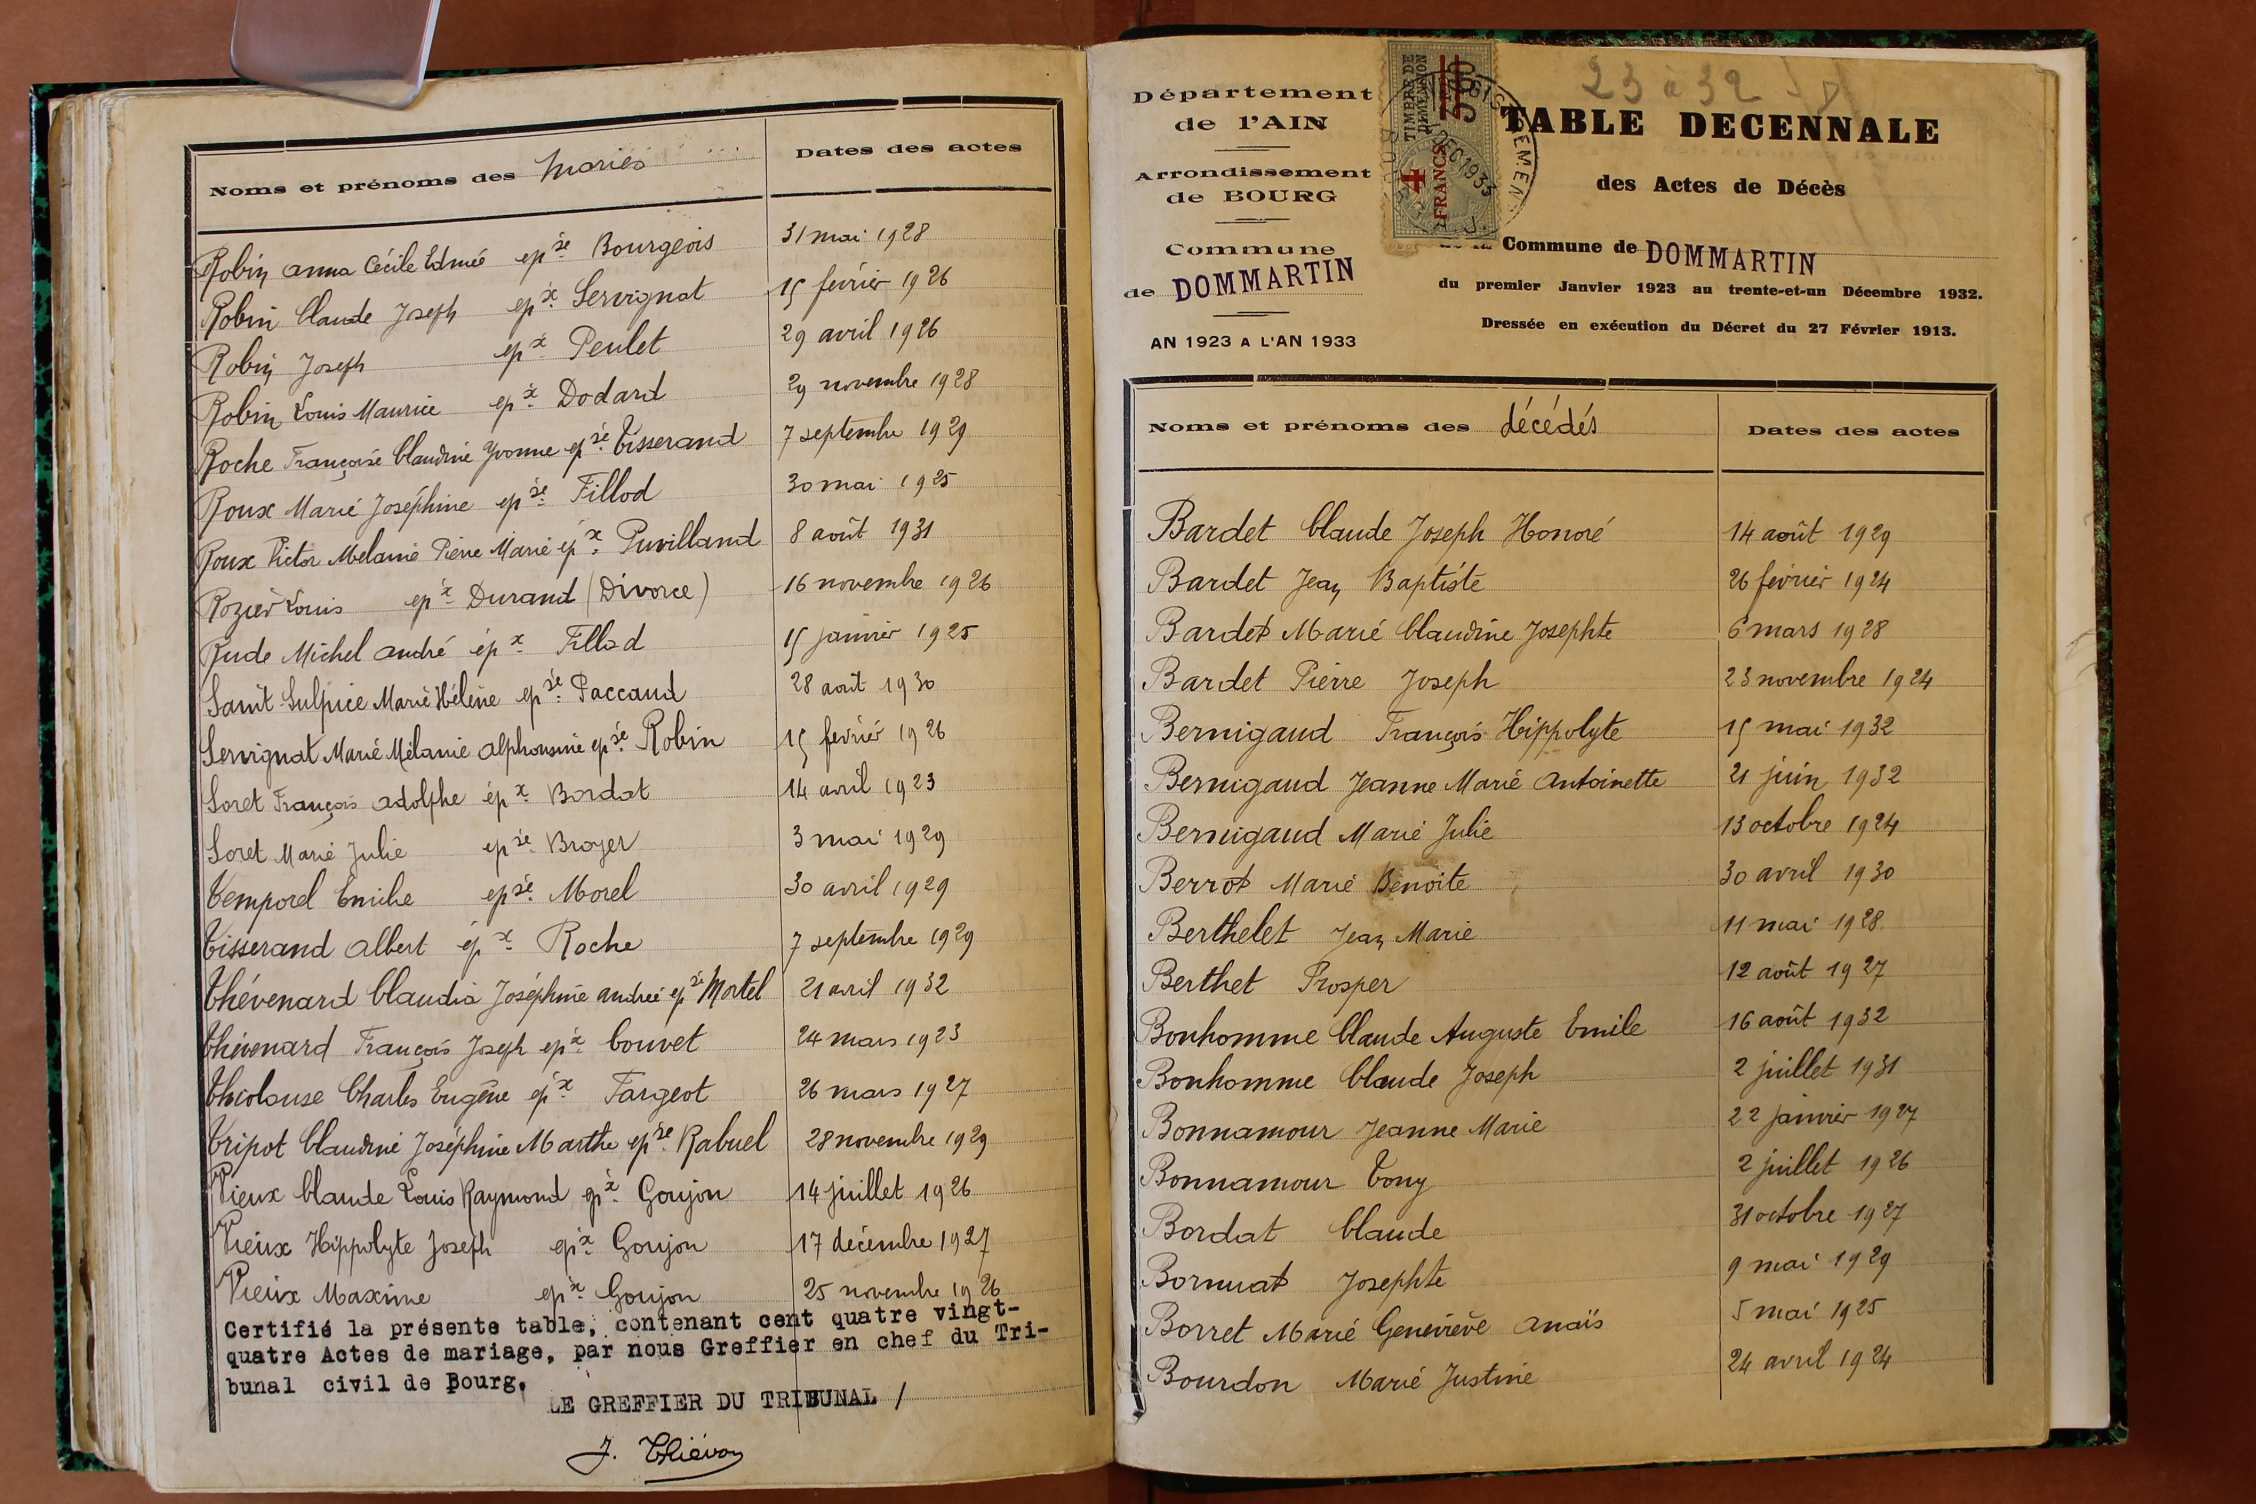 Noms et prénoms des mariés Dates des actes
Robin Anna Cécile Edmée ep.se Bourgeois 31 mai 1928
Robin Claude Joseph ep.x Servignat 15 février 1926
Robin Joseph ep.x Peulet 29 avril 1926
Robin Louis Maurice ep.x Dodard 29 novembre 1928
Roche Françoise Claudine Yvonne ep.se Tisserand 7 septembre 1929
Roux Marie Joséphine ep.se Fillod 30 mai 1925
Roux Victor Melanie Pierre Marie ép.x Puvilland 8 août 1931
Rozier Louis ep.x Durand (Divorce) 16 novembre 1926
Rude Michel André ép.x Fillod 15 janvier 1925
Saint-Sulpice Marie Hélène ep.se Paccaud 28 août 1930
Servignat Marie Mélanie Alphonsine ep.se Robin 15 février 1926
Soret François Adolphe ép.x Bordat 14 avril 1923
Soret Marie Julie ep.se Broyer 3 mai 1929
Temporel Emilie ep.se Morel 30 avril 1929
Tisserand Albert ép.x Roche 7 septembre 1929
Thévenard Claudia Joséphine Andrée ep.se Mortel 21 avril 1932
Thévenard François Joseph ep.x Couvet 24 mars 1923
Thicolouse Charles Eugène ep.x Fargeot 26 mars 1927
Tripot Claudine Joséphine Marthe ep.se Rabuel 28 novembre 1929
Vieux Claude Louis Raymond ep.x Goujon 14 juillet 1926
Vieux Hippolyte Joseph ep.x Goujon 17 décembre 1927
Vieux Maxime ep.x Goujon 25 novembre 1926
Certifié la présente table, contenant cent quatre vingt-
quatre Actes de mariage, par nous Greffier en chef du Tri-
bunal civil de Bourg.
LE GREFFIER DU TRIBUNAL /
J. Thiévon
23 à 32
Département
de l'AIN
Arrondissement
de BOURG
Commune
de DOMMARTIN
AN 1923 A L'AN 1933
TIMBRE DE
DIMENSION
4
FRANCS
DEC 1933
TABLE DECENNALE
des Actes de Décès
Commune de DOMMARTIN
du premier Janvier 1923 au trente-et-un Décembre 1932.
Dressée en exécution du Décret du 27 Février 1913.
Noms et prénoms des décédés Dates des actes
Bardet Claude Joseph Honoré 14 août 1929
Bardet Jean Baptiste 26 février 1924
Bardet Marie Claudine Josephte 6 mars 1928
Bardet Pierre Joseph 23 novembre 1924
Bernigaud François Hippolyte 15 mai 1932
Bernigaud Jeanne Marie Antoinette 21 juin 1932
Bernigaud Marie Julie 13 octobre 1924
Berrot Marie Benoite 30 avril 1930
Berthelet Jean Marie 11 mai 1928
Berthet Prosper 12 août 1927
Bonhomme Claude Auguste Emile 16 août 1932
Bonhomme Claude Joseph 2 juillet 1931
Bonnamour Jeanne Marie 22 janvier 1927
Bonnamour Tony 2 juillet 1926
Bordat Claude 31 octobre 1927
Bornuat Josephte 9 mai 1929
Borret Marie Geneviève Anaïs 5 mai 1925
Bourdon Marie Justine 24 avril 1924